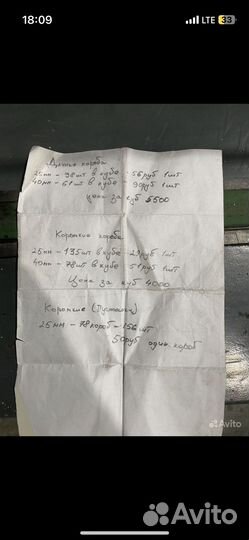 18:09
LTE 33
Длинные короба
25мм - 98шт в кубе - 56руб 1шт
40мм - 61шт в кубе - 90руб 1шт
цена за куб 5500
Короткие короба
25мм - 135шт в кубе - 29руб 1шт
40мм - 78шт в кубе - 51руб 1шт
Цена за куб 4000
Короткие (Пустышки)
25мм - 78короб - 156шт
50руб один короб
Avito
Avito